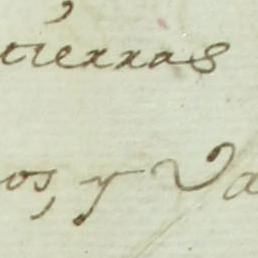 tierras
os, y Va